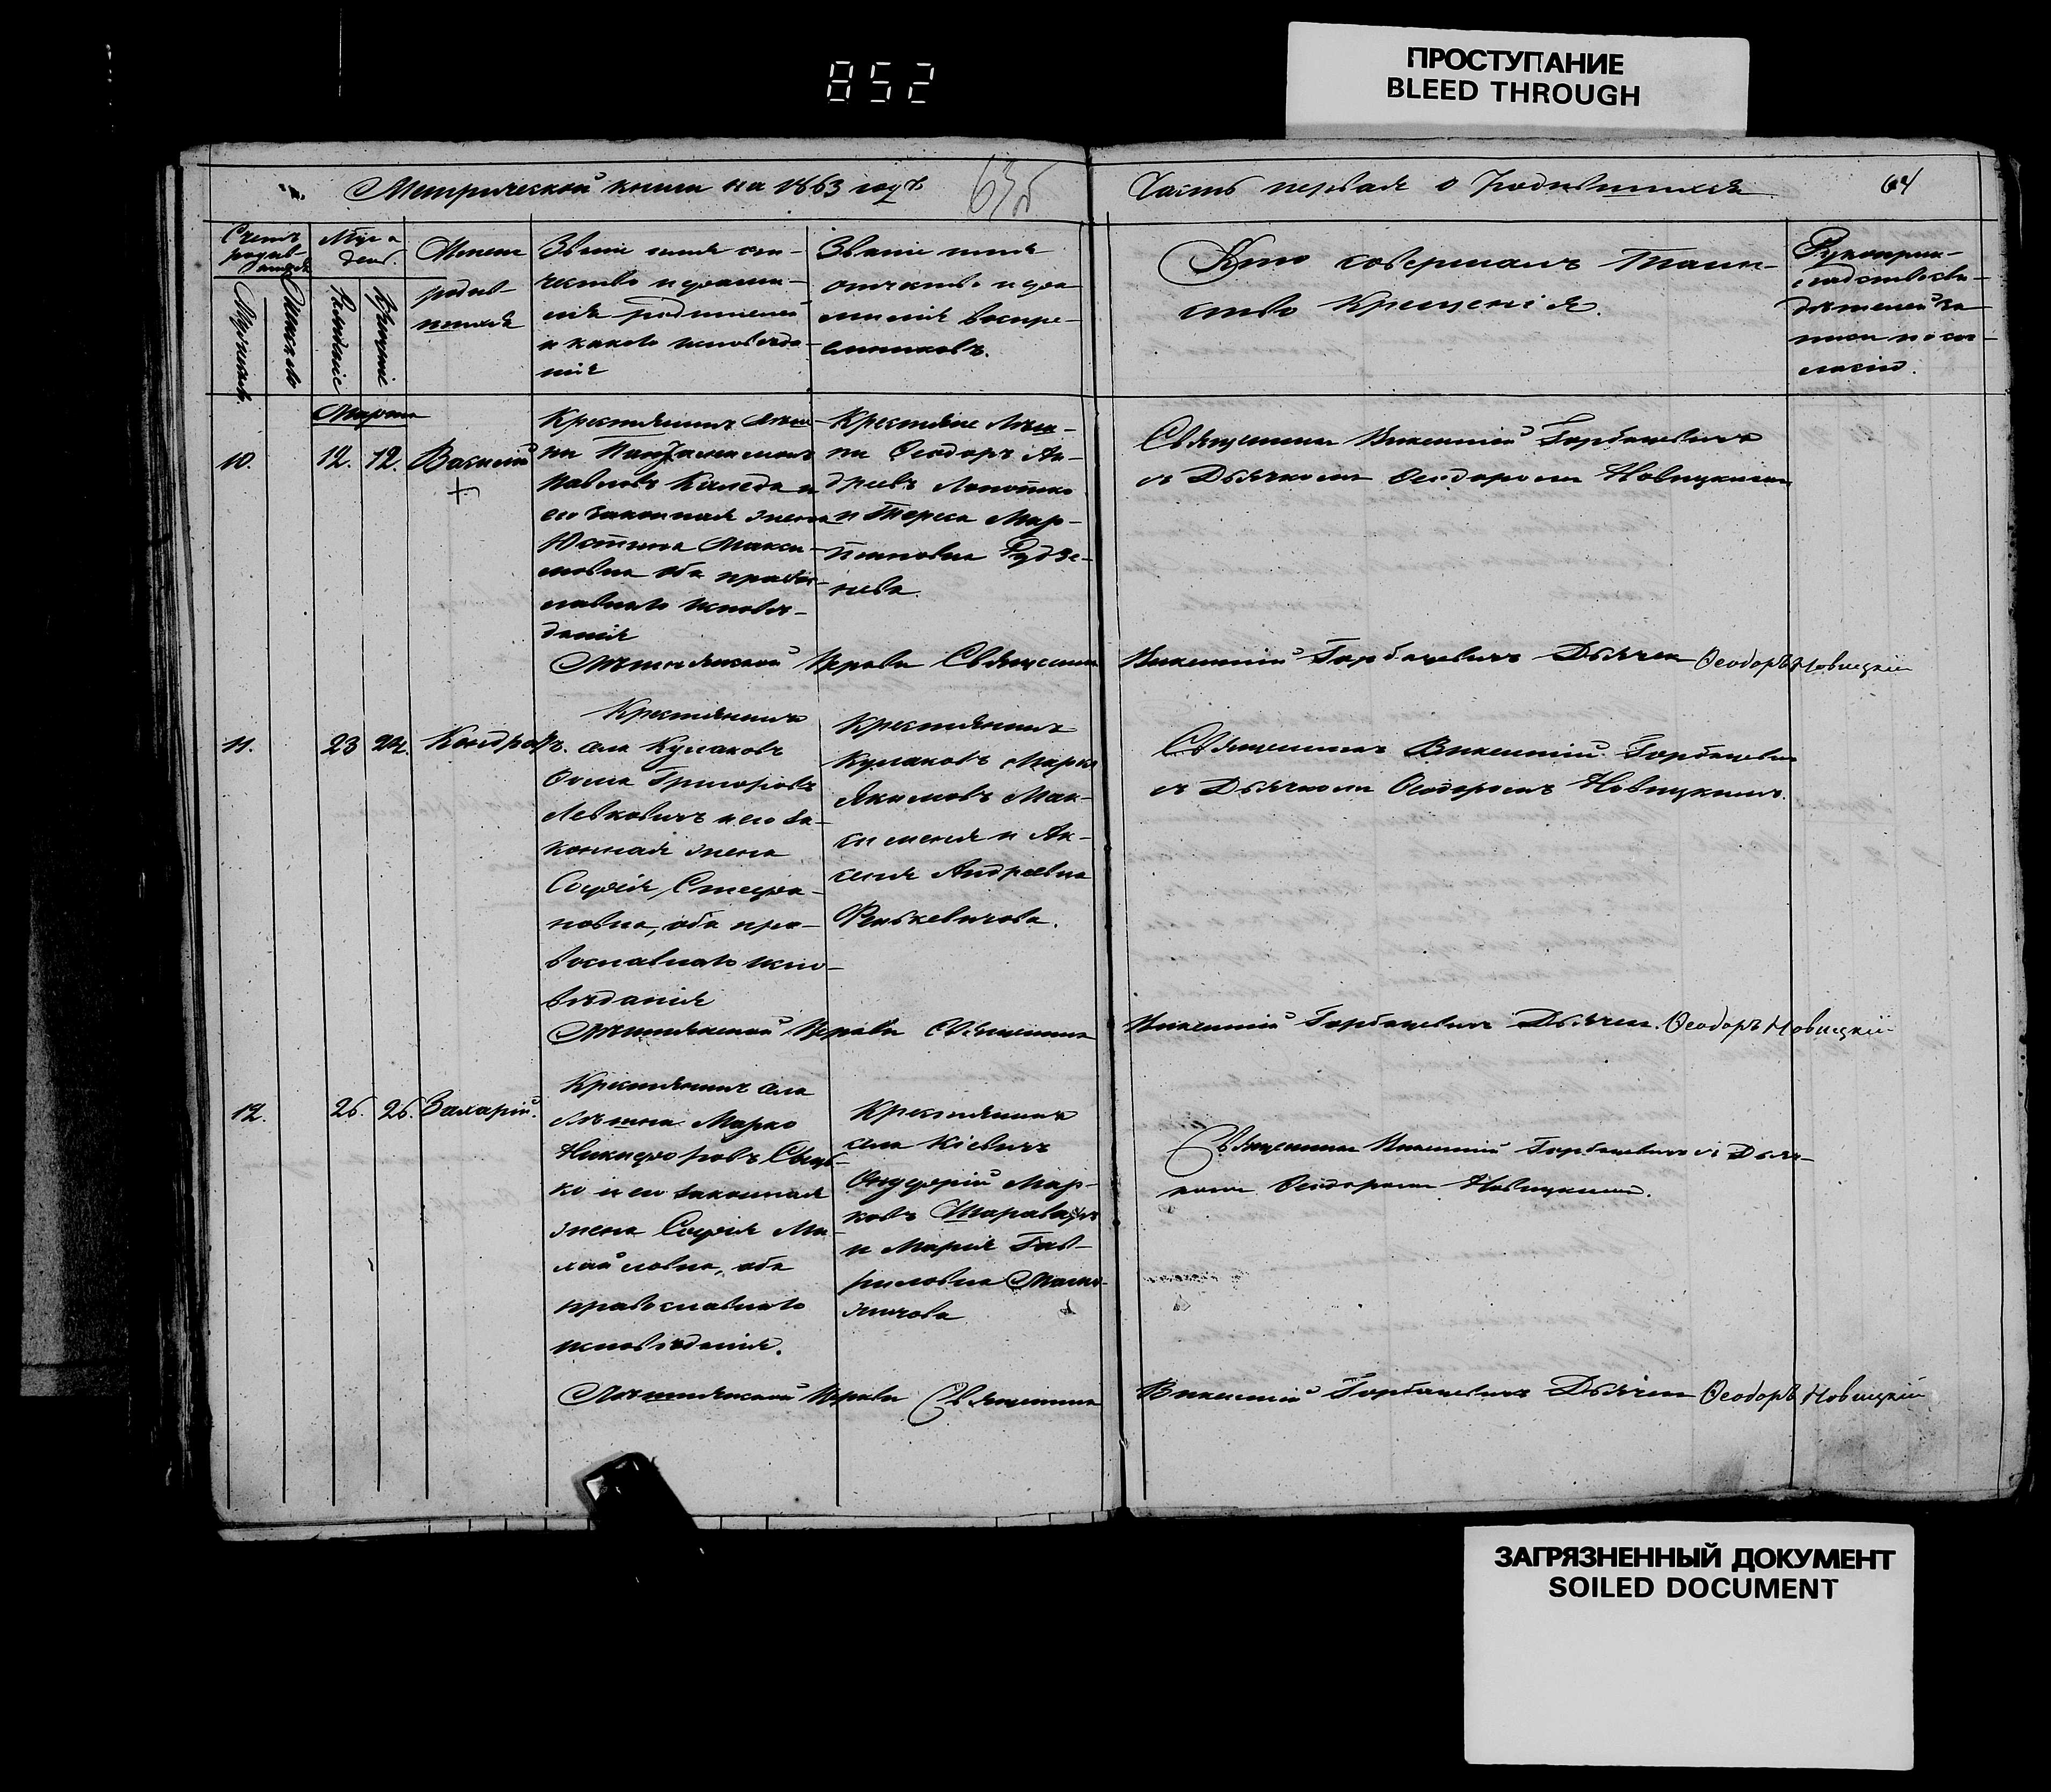 852
ПРОСТУПАНИЕ
BLEED THROUGH
Метрической книги на 1863 годъ
63б
Часть первая о Родившихся
64
Счетъ родив-
шихся
Мѣс. и
день
Мужеск.
Женска
Рожденіе
Крещеніе
Имена
родив-
шихся
Званіе имя оте-
чество и фами-
лія родителей
и какого исповѣда-
нія
Званіе имя
отчество и фа-
милія воспре-
емниковъ.
Кто совершалъ Таин-
ство Крещенія.
Рукоприк-
ладство сви-
дѣтелей за-
писи по со-
гласію.
Марта
10.
12. 12. Василій
Крестьянинъ
Павловъ Каледа и
его законная жена
Юстина Макси-
мовна оба правос-
лавнаго исповѣ-
данія
Крестьяне
Ѳеодоръ Ан-
дреевъ Лопотко
и Тереса Мар-
тиновна
Священникъ Викентій Горбацевичъ
съ Дьячкомъ Ѳеодоромъ Новицкимъ
Церкви Священникъ
Викентій Горбацевичъ Дьячекъ Ѳеодоръ Новицкій
11.
23 24. Кондратъ.
Крестьянинъ
села Кулаковъ
Ѳома Григоровъ
Левковичъ и его за-
конная жена
Софія Стефа-
новна, оба пра-
вославнаго испо-
вѣданія
Крестьянинъ
Кулаковъ Марко
Якимовъ Мак-
сименя и Ак-
сенія Андреевна
Священникъ Викентій Горбацевичъ
съ Дьячкомъ Ѳеодоромъ Новицкимъ.
Церкви Священникъ
Викентій Горбацевичъ Дьячекъ Ѳеодоръ Новицкій
12.
26. 26. Захарій.
Крестьянинъ села
Марко
Никифоровъ
и его законная
жена Софія Ми-
хайловна, оба
православнаго
исповѣданія.
Крестьянинъ
села Кіевичъ
Онуфрій Мар-
ковъ
и Марія Гав-
риловна
Священникъ Викентій Горбацевичъ съ Дьяч-
комъ Ѳеодоромъ Новицкимъ.
Церкви Священникъ
Викентій Горбацевичъ Дьячекъ Ѳеодоръ Новицкій
ЗАГРЯЗНЕННЫЙ ДОКУМЕНТ
SOILED DOCUMENT